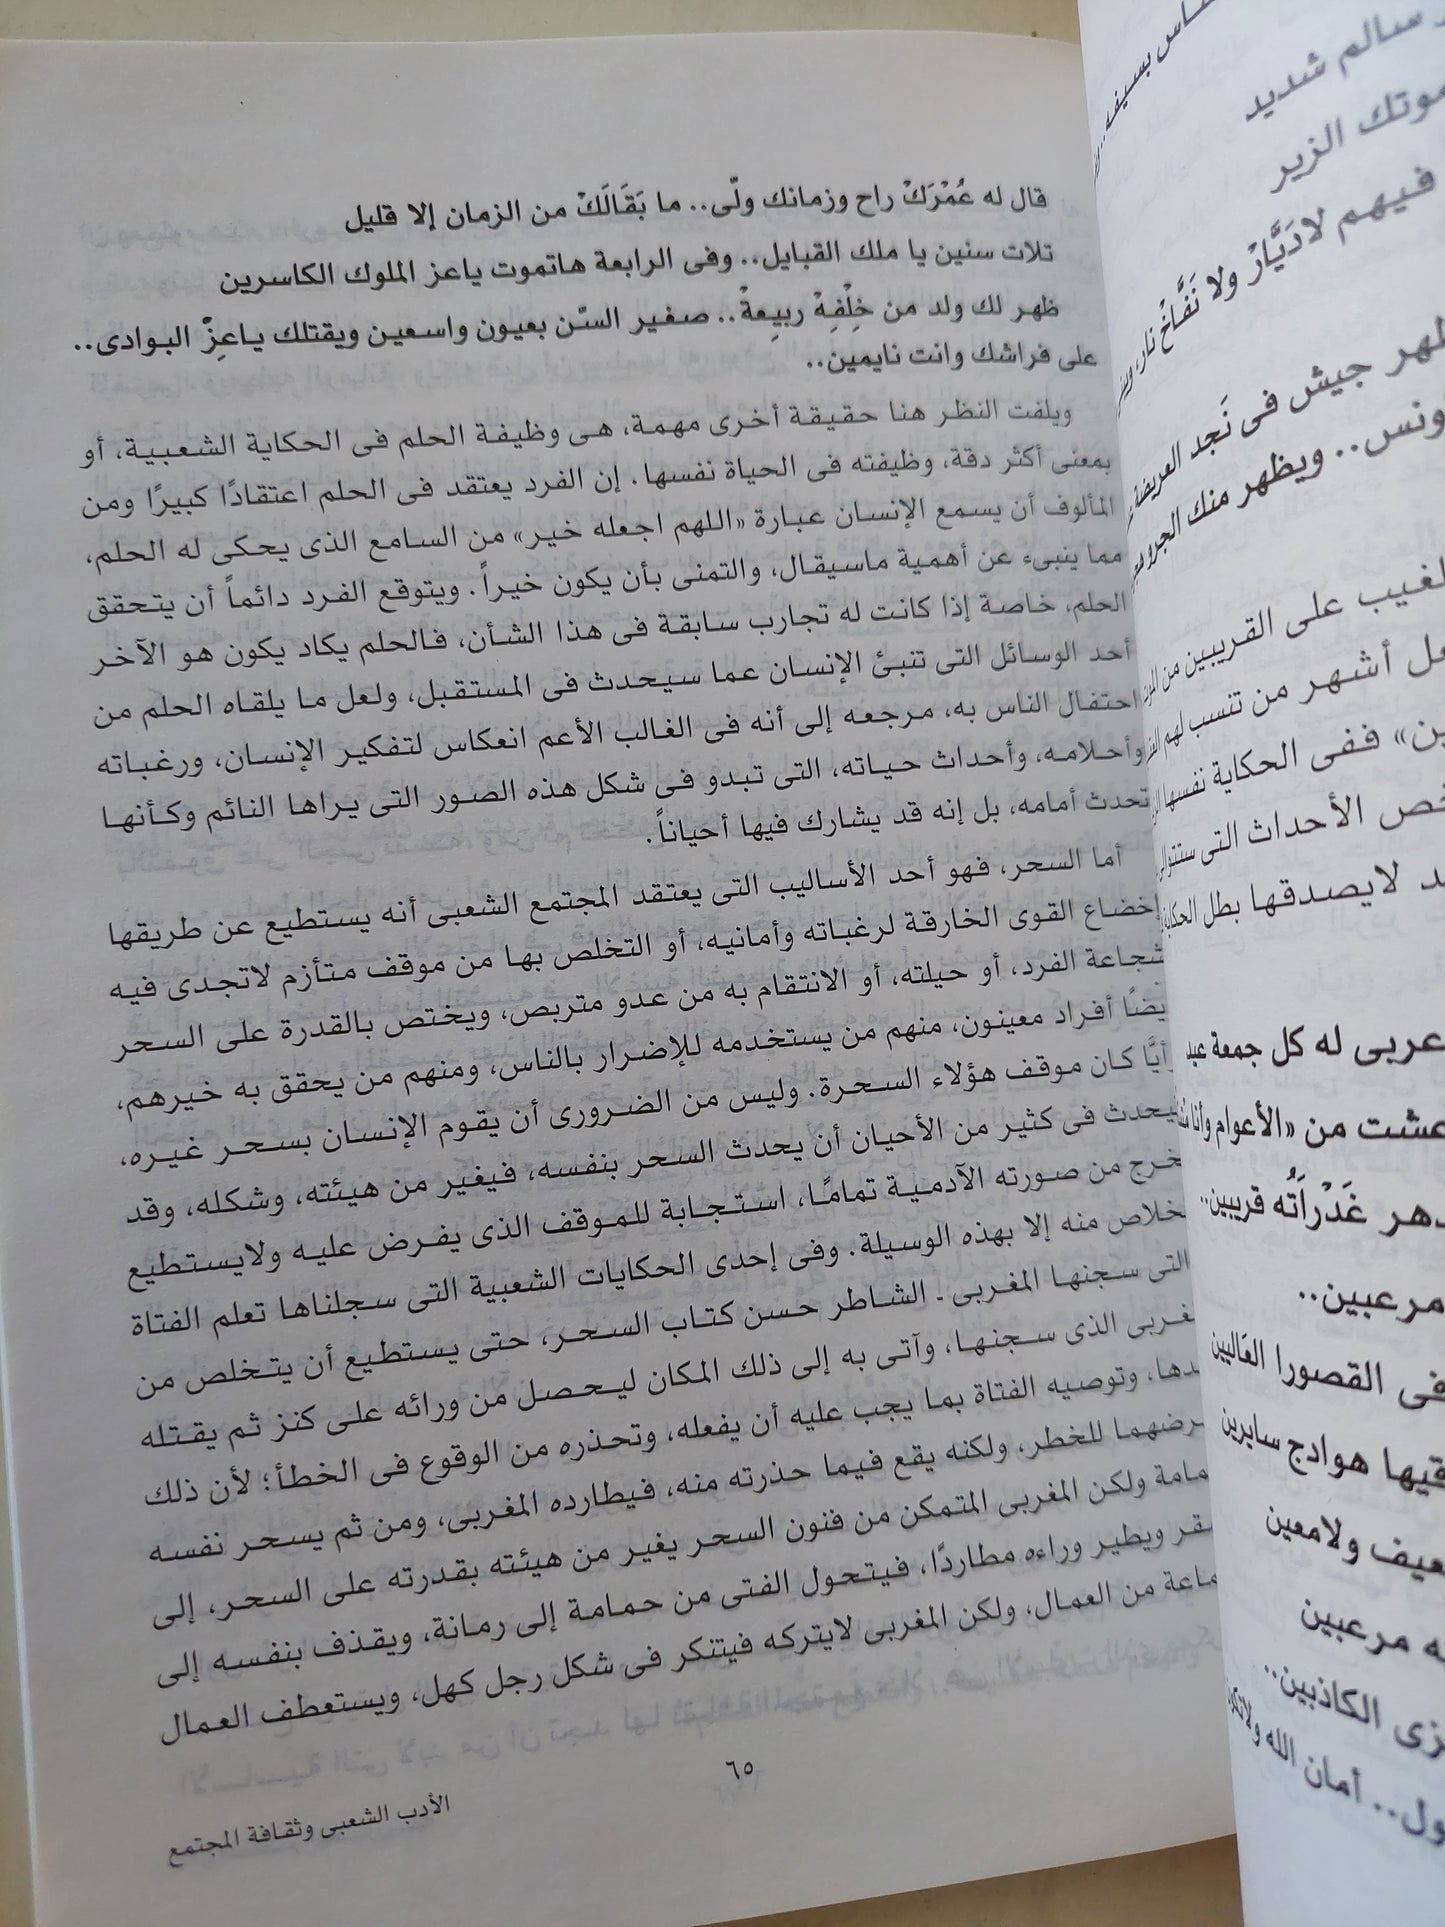 قال له عُمْرَكْ راح وزمانك ولّى.. ما بَقَالَكْ من الزمان إلا قليل
تلات سنين يا ملك القبايل.. وفى الرابعة هاتموت ياعز الملوك الكاسرين
ظهر لك ولد من خِلْفِةْ ربيعةْ.. صغير السّن بعيون واسعين ويقتلك ياعزّ البوادى..
على فراشك وانت نايمين..
ويلفت النظر هنا حقيقة أخرى مهمة، هى وظيفة الحلم فى الحكاية الشعبية، أو
بمعنى أكثر دقة، وظيفته فى الحياة نفسها. إن الفرد يعتقد فى الحلم اعتقادًا كبيرًا ومن
المألوف أن يسمع الإنسان عبارة «اللهم اجعله خير» من السامع الذى يحكى له الحلم،
مما ينبىء عن أهمية ماسيقال، والتمنى بأن يكون خيراً. ويتوقع الفرد دائماً أن يتحقق
الحلم، خاصة إذا كانت له تجارب سابقة فى هذا الشأن، فالحلم يكاد يكون هو الآخر
أحد الوسائل التى تنبئ الإنسان عما سيحدث فى المستقبل، ولعل ما يلقاه الحلم من
احتفال الناس به، مرجعه إلى أنه فى الغالب الأعم انعكاس لتفكير الإنسان، ورغباته
وأحلامه، وأحداث حياته، التى تبدو فى شكل هذه الصور التى يراها النائم وكأنها
تحدث أمامه، بل إنه قد يشارك فيها أحياناً.
أما السحر، فهو أحد الأساليب التى يعتقد المجتمع الشعبى أنه يستطيع عن طريقها
إخضاع القوى الخارقة لرغباته وأمانيه، أو التخلص بها من موقف متأزم لاتجدى فيه
شجاعة الفرد، أو حيلته، أو الانتقام به من عدو متربص، ويختص بالقدرة على السحر
أفراد معينون، منهم من يستخدمه للإضرار بالناس، ومنهم من يحقق به خيرهم،
أيًا كان موقف هؤلاء السحرة. وليس من الضرورى أن يقوم الإنسان بسحر غيره،
فى كثير من الأحيان أن يحدث السحر بنفسه، فيغير من هيئته، وشكله، وقد
من صورته الآدمية تمامًا، استجابة للموقف الذى يفرض عليه ولايستطيع
منه إلا بهذه الوسيلة. وفى إحدى الحكايات الشعبية التى سجلناها تعلم الفتاة
التى سجنها المغربى - الشاطر حسن كتاب السحر، حتى يستطيع أن يتخلص من
الذى سجنها، وآتى به إلى ذلك المكان ليحصل من ورائه على كنز ثم يقتله
وتوصيه الفتاة بما يجب عليه أن يفعله، وتحذره من الوقوع فى الخطأ؛ لأن ذلك
للخطر، ولكنه يقع فيما حذرته منه، فيطارده المغربى، ومن ثم يسحر نفسه
ولكن المغربى المتمكن من فنون السحر يغير من هيئته بقدرته على السحر، إلى
ويطير وراءه مطاردًا، فيتحول الفتى من حمامة إلى رمانة، ويقذف بنفسه إلى
من العمال، ولكن المغربى لايتركه فيتنكر فى شكل رجل كهل، ويستعطف العمال
٦٥
الأدب الشعبى وثقافة المجتمع
بسيفه..
سالم شديد
الزير
فيهم لادَيَّارْ ولا نَفَّاخْ نار،
جيش فى نَجد العريضة
ويظهر منك الجرو
على القريبين من
أشهر من تنسب لهم
ففى الحكاية نفسها
الأحداث التى ستتوالى
لايصدقها بطل
له كل جمعة
من «الأعوام وأنا
غَدْرَاتُه قريبين..
مرعبين..
القصورا العَاليين
هوادج سايرين
ولامعين
مرعبين
الكاذبين..
أمان الله